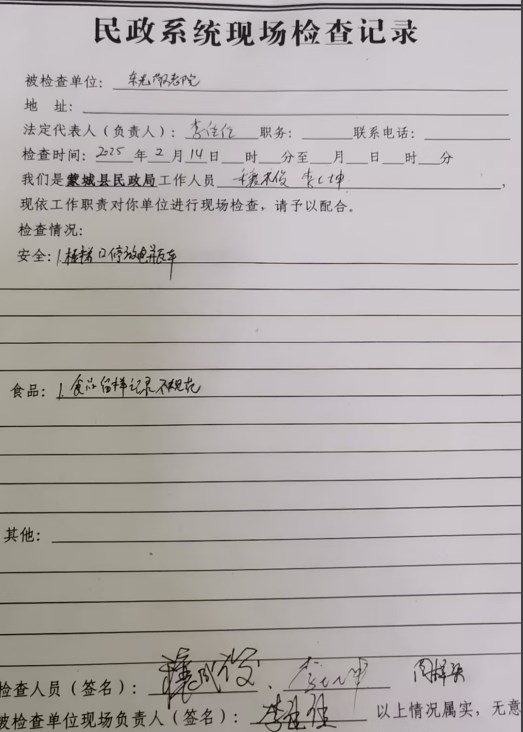 民政系统现场检查记录
被检查单位：敬老院
地 址：
法定代表人（负责人）：李 职务： 联系电话：
检查时间：2025年2月14日 时 分至 月 日 时 分
我们是蒙城县民政局工作人员 ，
现依工作职责对你单位进行现场检查，请予以配合。
检查情况：
安全：1.楼梯口停放电瓶车
食品：1.食品留样记录不规范
其他：
检查人员（签名）：
被检查单位现场负责人（签名）：李 以上情况属实，无意